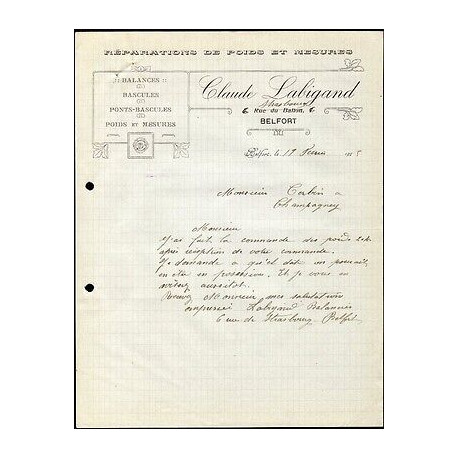 RÉPARATIONS DE POIDS ET MESURES
:: BALANCES ::
BASCULES
PONTS-BASCULES
POIDS ET MESURES
Claude Labigand
Strasbourg
6, Rue du Ballon, 6
BELFORT
Belfort, le 17
Monsieur Corbin a
Champagney
Monsieur
J'ai fait la commande des poids
après réception de votre commande.
Je demande a quel date on pourrait
en être en possession. Et je vous
aussitot.
Recevez Monsieur mes salutations
empressés Labigand Balancier
6 rue de Strasbourg Belfort